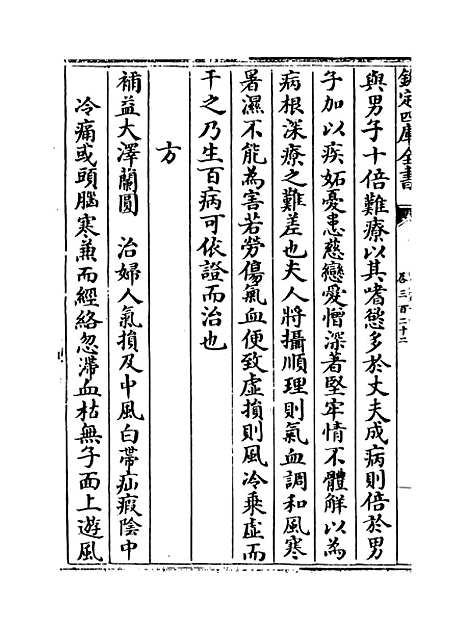 欽定四庫全書
卷三百二十二
與男子十倍難療以其嗜慾多於丈夫成病則倍於男
子加以疾妬憂恚慈戀愛憎深著堅牢情不體解以為
病根深療之難差也夫人將攝順理則氣血調和風寒
暑濕不能為害若勞傷氣血便致虚損則風冷乗虚而
干之乃生百病可依證而治也
方
補益大澤蘭圓　治婦人氣損及中風白帶疝瘕陰中
冷痛或頭腦寒兼而經絡忽滯血枯無子面上遊風